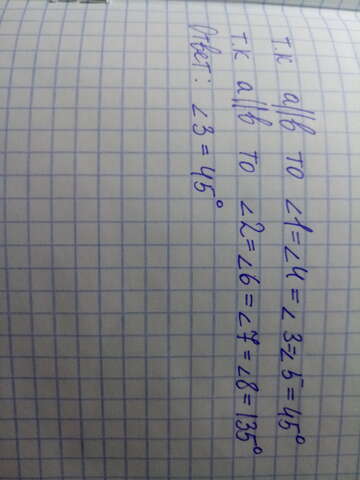 т.к a||b то ∠1=∠4=∠3=∠5=45°
т.к a||b то ∠2=∠6=∠7=∠8=135°
Ответ: ∠3=45°